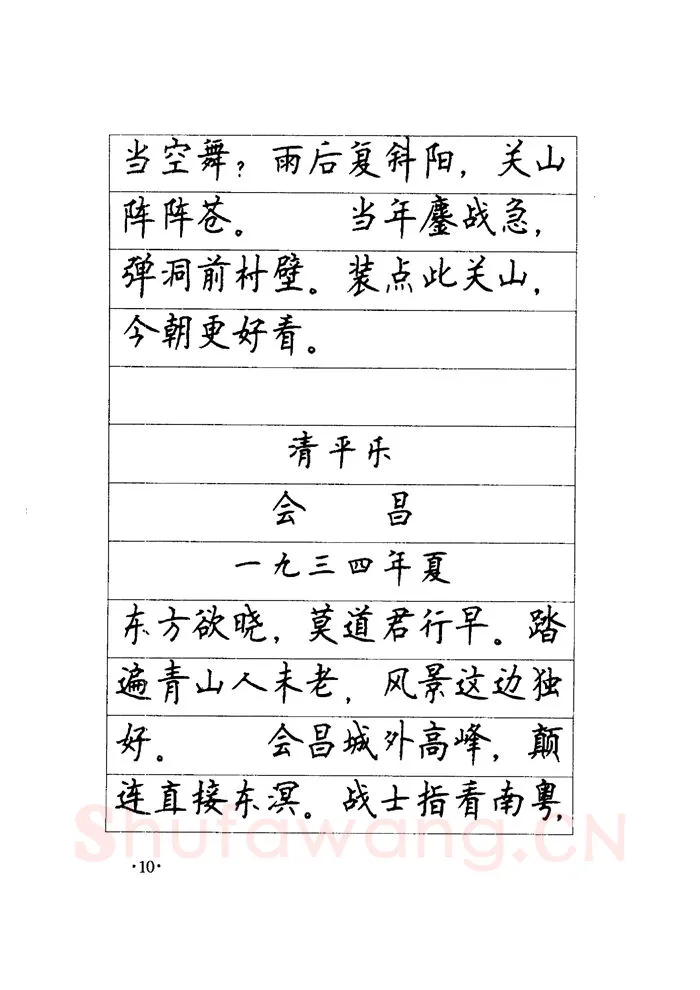 当空舞？雨后复斜阳，关山
阵阵苍。　　当年鏖战急，
弹洞前村壁。装点此关山，
今朝更好看。
清平乐
会　昌
一九三四年夏
东方欲晓，莫道君行早。踏
遍青山人未老，风景这边独
好。　　会昌城外高峰，颠
连直接东溟。战士指看南粤，
Shufawang.CN
·10·